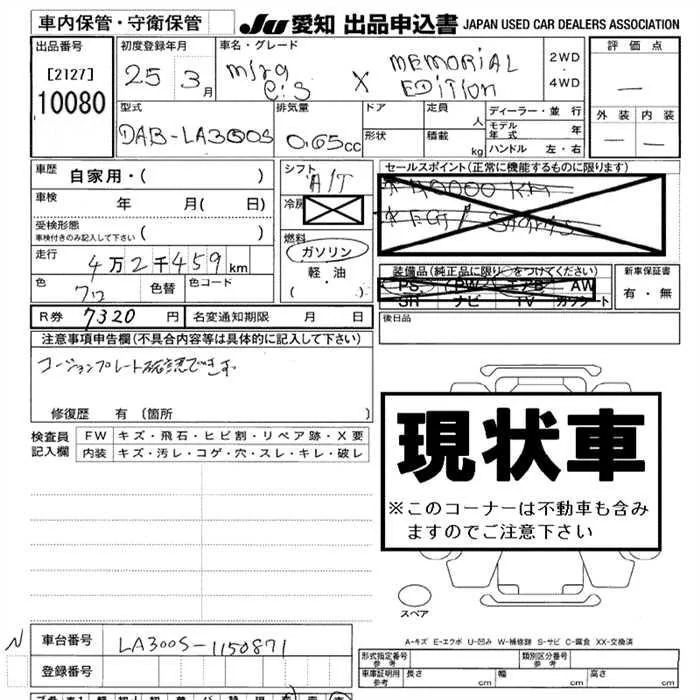 車内保管・守衛保管
JU 愛知 出品申込書 JAPAN USED CAR DEALERS ASSOCIATION
出品番号
[2127]
10080
初度登録年月
25 3月
車名・グレード
mira e:S X MEMORIAL EDITION
2WD
・
4WD
評価点
―
外装 内装
― ―
型式
DAB-LA300S
排気量
0.65cc
ドア
形状
定員 人
積載 kg
ディーラー・並行
モデル年式 年
ハンドル 左・右
車歴 自家用・( )
車検 年 月( 日)
受検形態
車検付きのみ記入して下さい ( )
走行 4万2千459km
色 色替 色コード
シフト
A/T
冷房
燃料
ガソリン
軽・油
( ・ )
セールスポイント(正常に機能するものに限ります)
*40000KM
装備品(純正品に限り○をつけてください)
PS PW エアB AW
SR ナビ TV カワシート
新車保証書
有・無
R券 7320 円 名変通知期限 月 日
後日品
注意事項申告欄(不具合内容等は具体的に記入して下さい)
コーションプレート確認できます
修復歴 有(箇所 )
検査員記入欄
FW キズ・飛石・ヒビ割・リペア跡・X要
内装 キズ・汚レ・コゲ・穴・スレ・キレ・破レ
現状車
※このコーナーは不動車も含み
ますのでご注意下さい
スペア
A-キズ E-エクボ U-凹み W-補修跡 S-サビ C-腐食 XX-交換済
N
車台番号 LA300S-1150871
登録番号
形式指定番号 参考
類別区分番号 参考
車庫証明用 参考 長さ cm 幅 cm 高さ cm